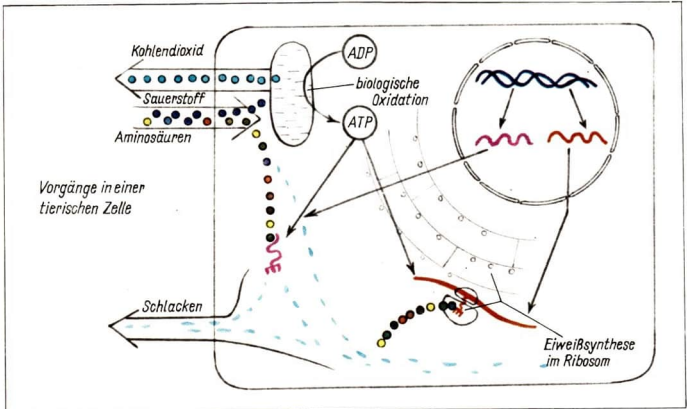 Kohlendioxid
Sauerstoff
Aminosäuren
ADP
biologische
Oxidation
ATP
Vorgänge in einer
tierischen Zelle
Schlacken
Eiweißsynthese
im Ribosom